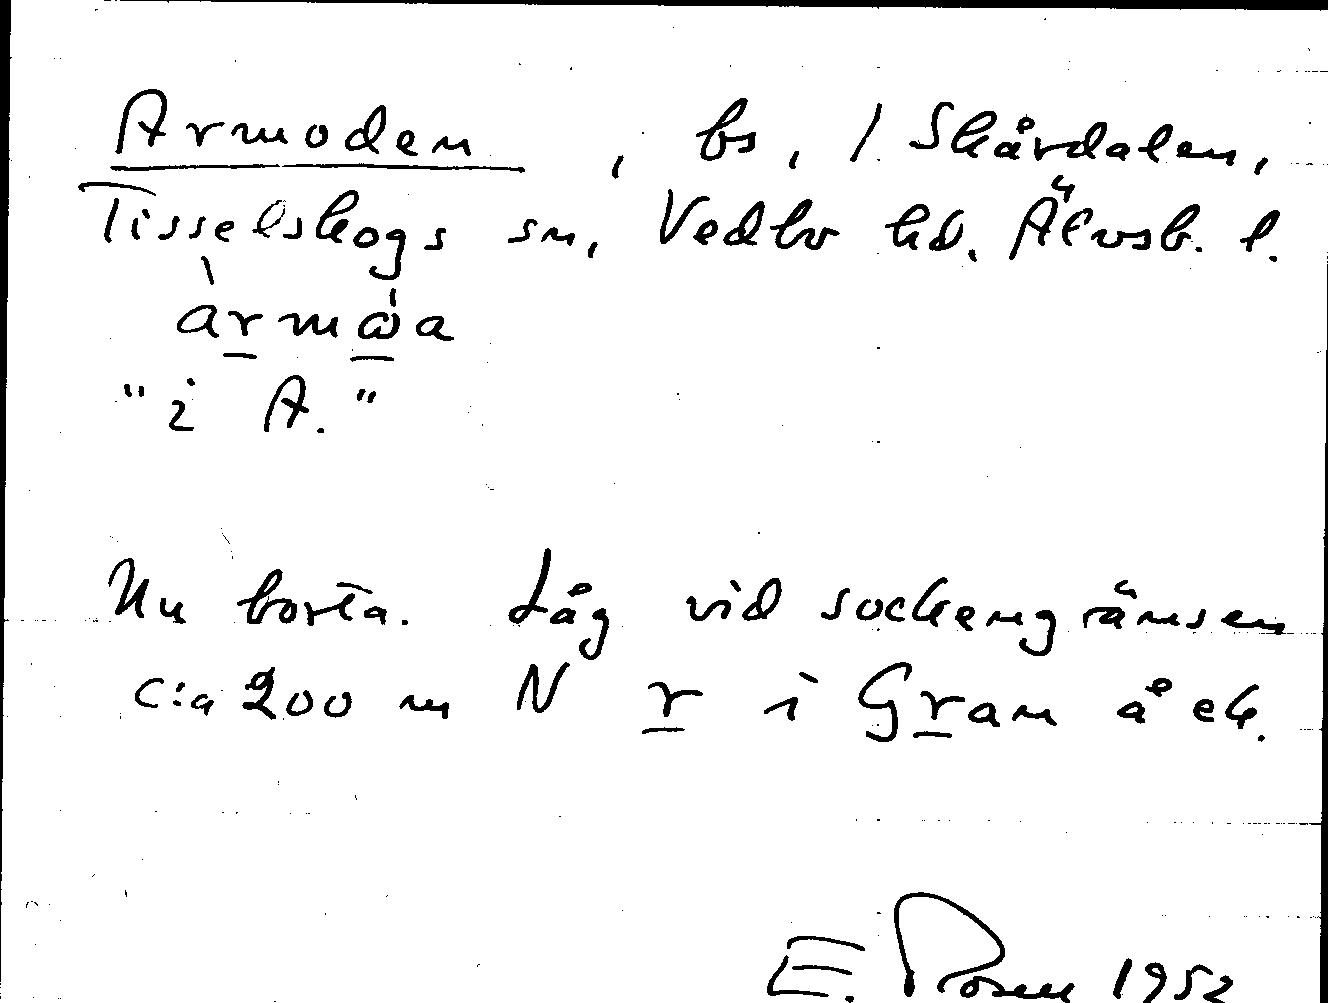 Armoden, bs, / Skårdalen,
Tisselskogs sn, Vedbo hd. Älvsb. l.
àrmω̇a
"i A."
Nu borta. Låg vid sockengränsen
c:a 200 m N r i Gran å ek.
E. Rosen 1952